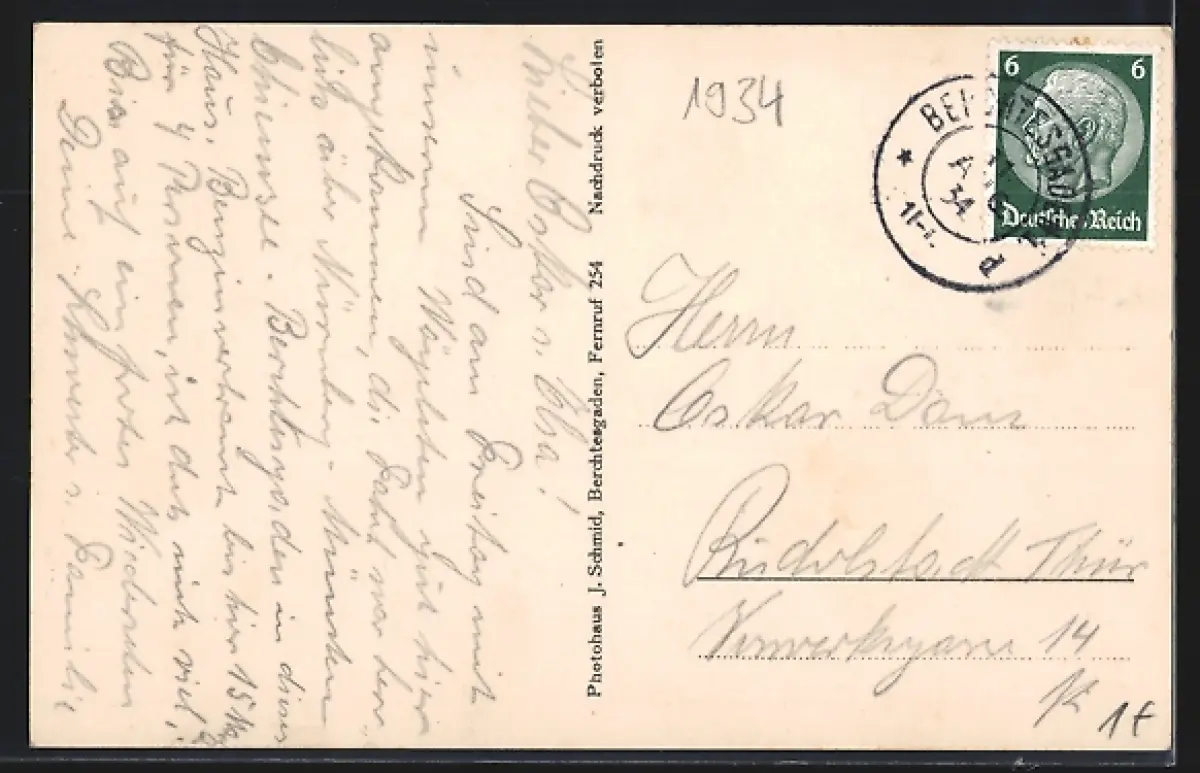 Lieber Oskar u. Elsa!
Sind am Freitag mit
unserem Wägelchen gut hier
angekommen, die Fahrt war herr
lich über Nürnberg - München
Chiemsee - Berchtesgaden in dieses
Haus. Benzinverbrauch bis hier 15 M
für 4 Personen, ist doch nicht viel,
Bis auf ein frohes Wiedersehen
Deine Schwester u. Familie
Photohaus J. Schmid, Berchtesgaden, Fernruf 254 Nachdruck verboten
1934
6 6
Deutsches Reich
BERCHTESGADEN
34
Herrn
Oskar
Rudolstadt Thür
14